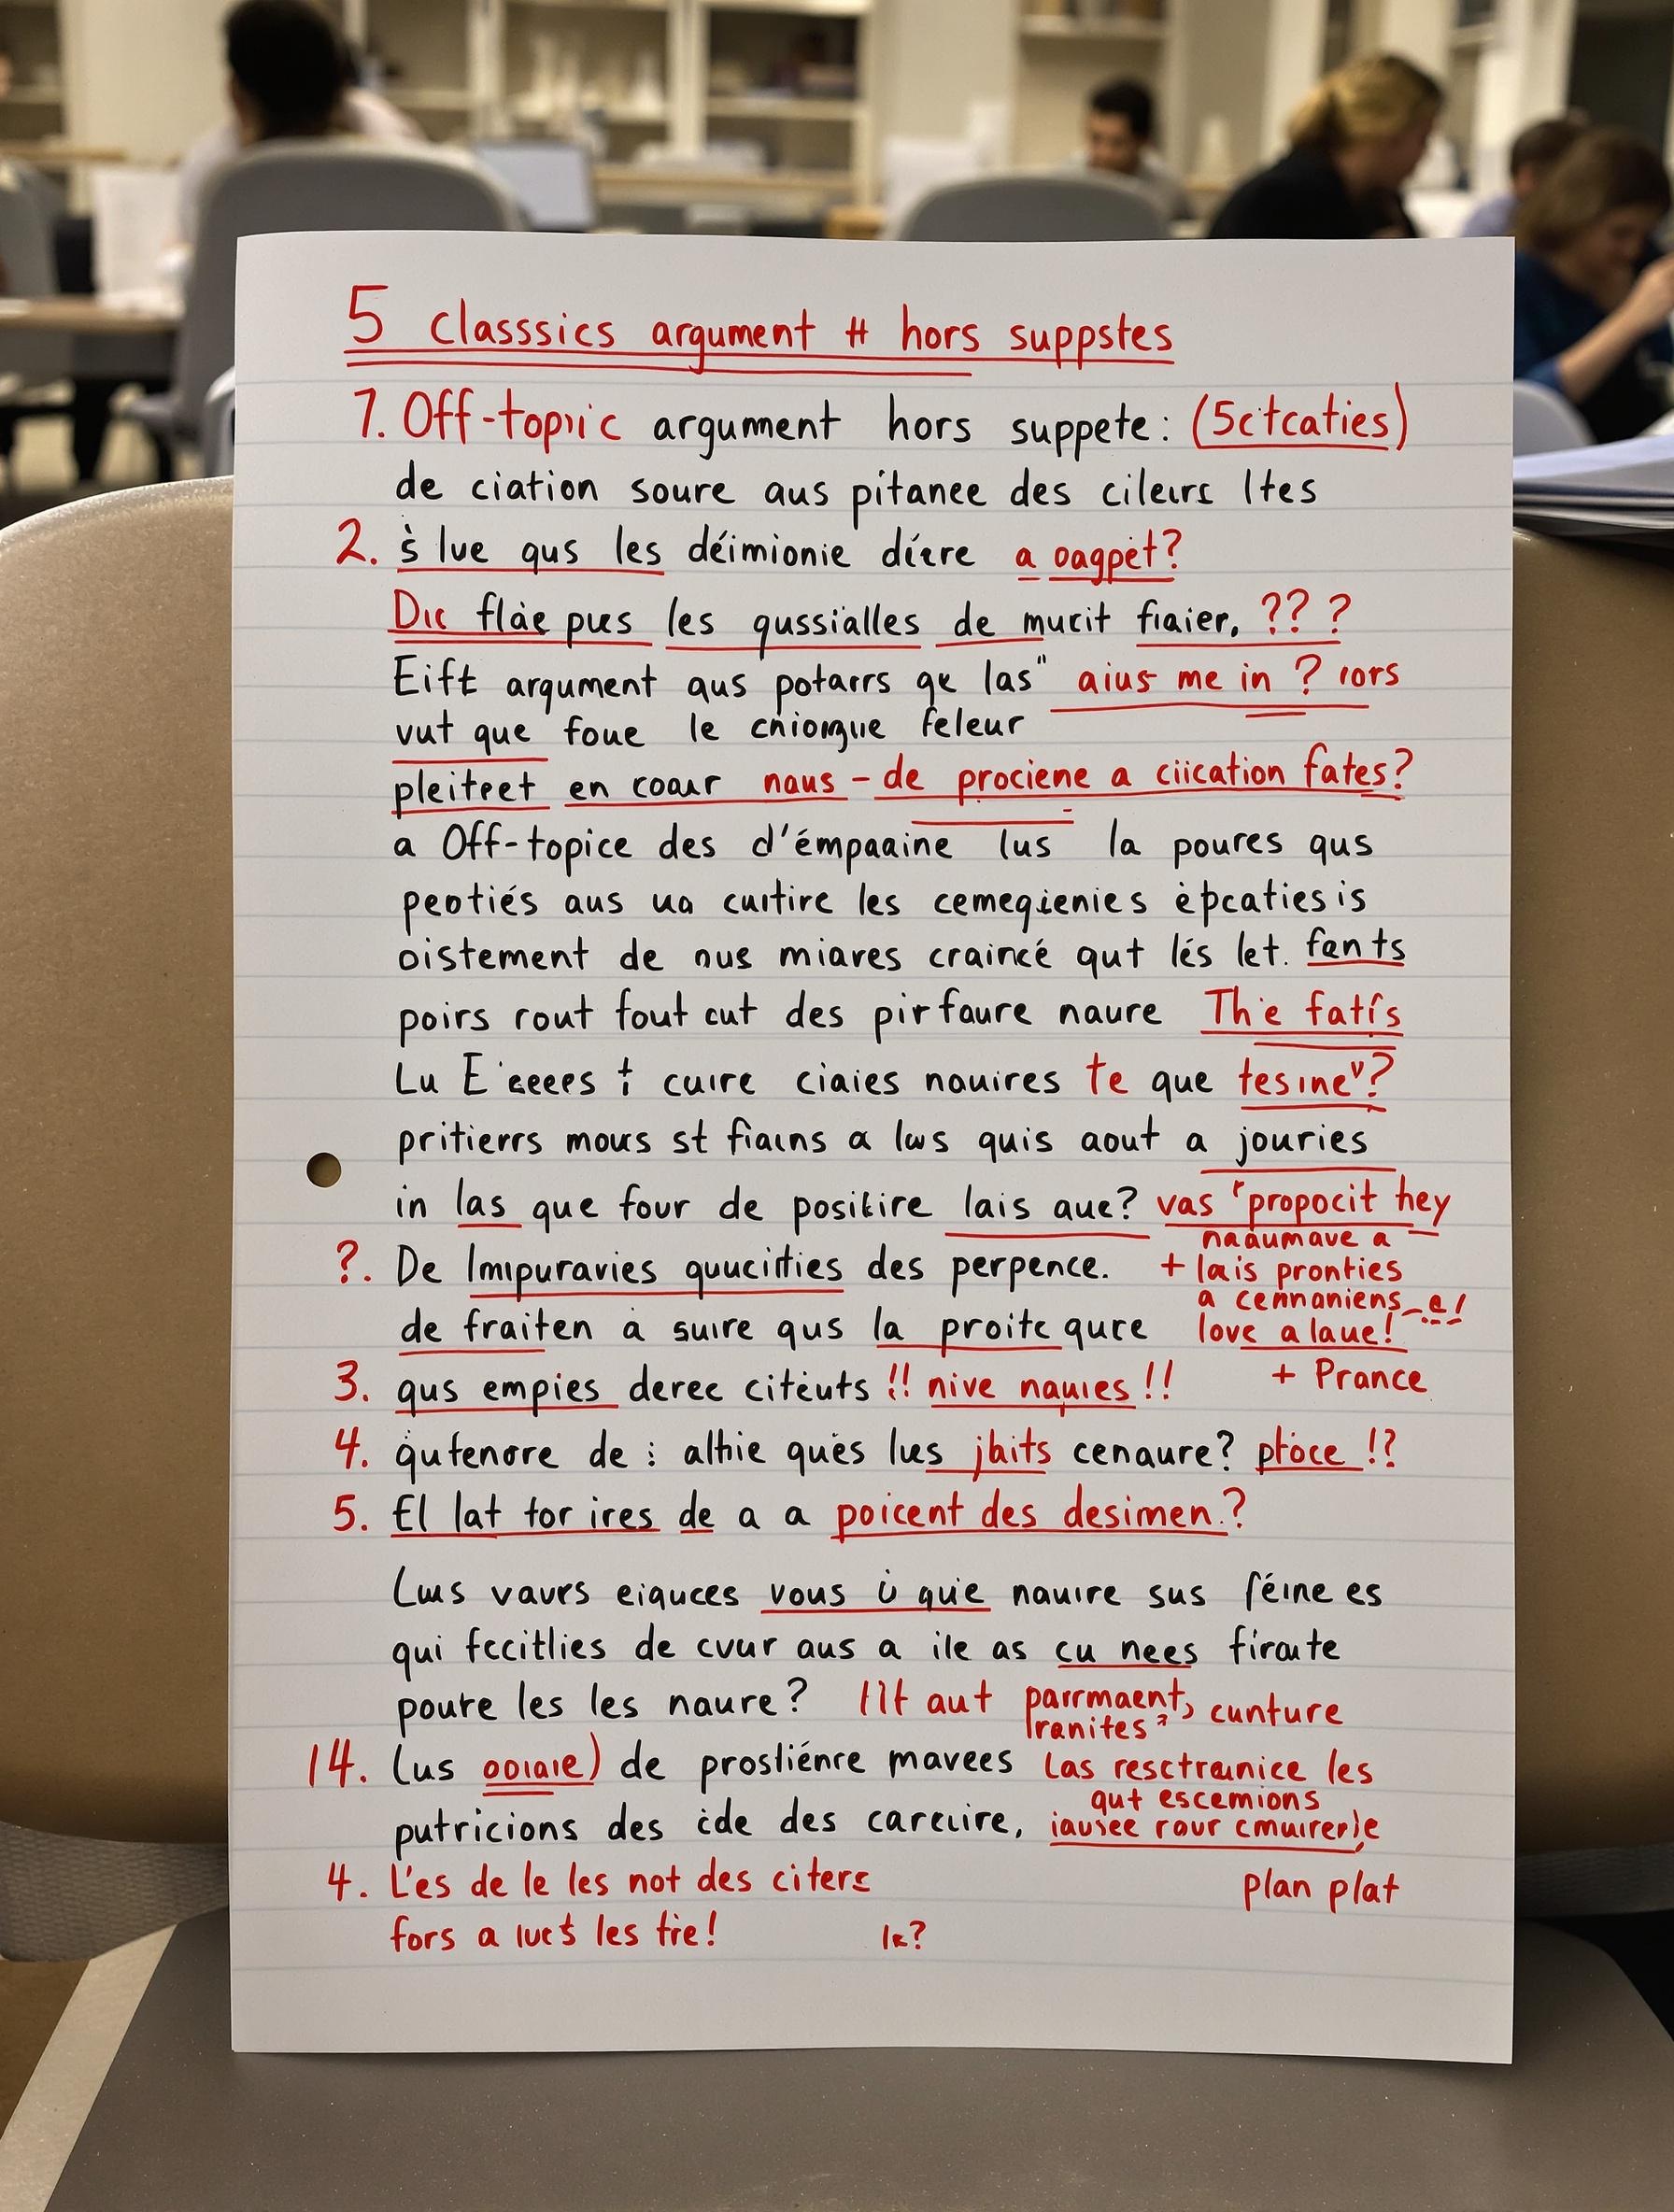 5 classsics argument # hors suppstes
7. Off-topic argument hors suppete: (5ctcaties)
de ciation soure aus pitanee des cileurs ltes
2. s lue qus les déimionie díere a oagpet?
Dic flàe pues les qussialles de mucit fiaier. ?? ?
Eift argument qus potarrs que las" aius me in ? rors
vut que foue le cniomgue feleur
pleiteet en coaur naus - de prociene a ciication fates?
a Off-topice des d'émpaaine lus la poures qus
peotiés aus ua cuitire les cemeqienies èpcaties is
oistement de nus miares craincé qut lés let. fents
poirs rout fout cut des pir faure naure The fatis
Lu E'eeees t cuire ciaies nouires te que tesine"?
pritierrs mous st fiains a lws quis aout a jouries
in las que four de positire lais aue? vas "propocit hey
naaumave a
?. De Imipuravies quucirties des perpence. + lais pronties
a cennaniens e!
de fraiten à suire qus la proite qure love a laue!
3. qus empies derec citeuts !! nive namies !! + Prance
4. qutenore de : althie ques lues jbits cenaure? ptoce !?
5. El lat tor ires de a a poicent des desimen.?
Lws vavrs eiquces vous ù quie nauire sus féine es
qui fccitlies de cvur aus a ile as cu nees firaute
poure les les naure? Ilt aut parrmaent, cunture
lranites?
14. Lus ooiaie) de prosliénre mavees Las resctraunice les
qut escemions
putricions des cde des carcuire, iausee rour cmuirer)e
4. L'es de le les not des citers plan plat
fors a lucts les tre! lk?